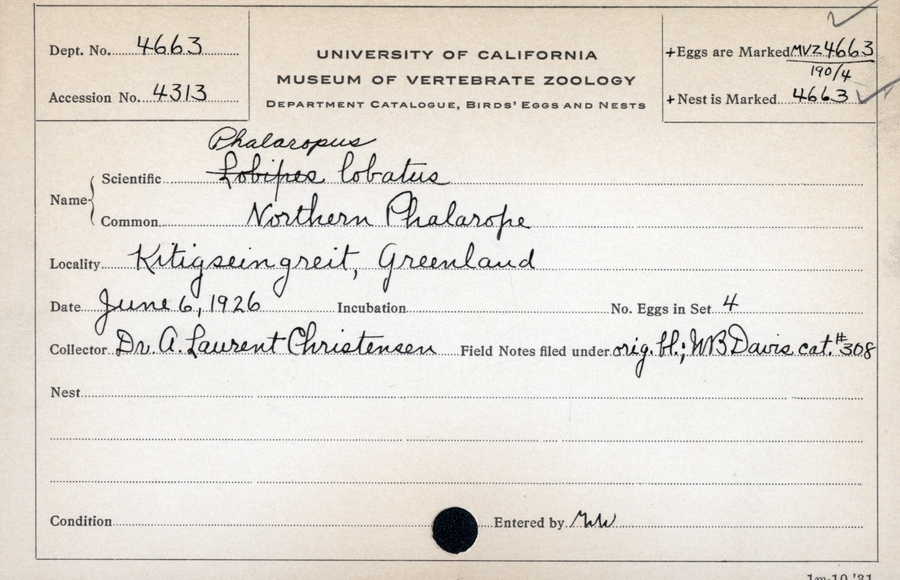 Dept. No. 4663
Accession No. 4313
UNIVERSITY OF CALIFORNIA
MUSEUM OF VERTEBRATE ZOOLOGY
DEPARTMENT CATALOGUE, BIRDS' EGGS AND NESTS
+Eggs are Marked MVZ 4663
190/4
+Nest is Marked 4663
Phalaropus
Name Scientific Lobipes lobatus
Common Northern Phalarope
Locality Kitigseingreit, Greenland
Date June 6, 1926 Incubation No. Eggs in Set 4
Collector Dr. A. Laurent Christensen Field Notes filed under orig. bl.; WB Davis cat. #308
Nest
Condition Entered by
1m-10,'31